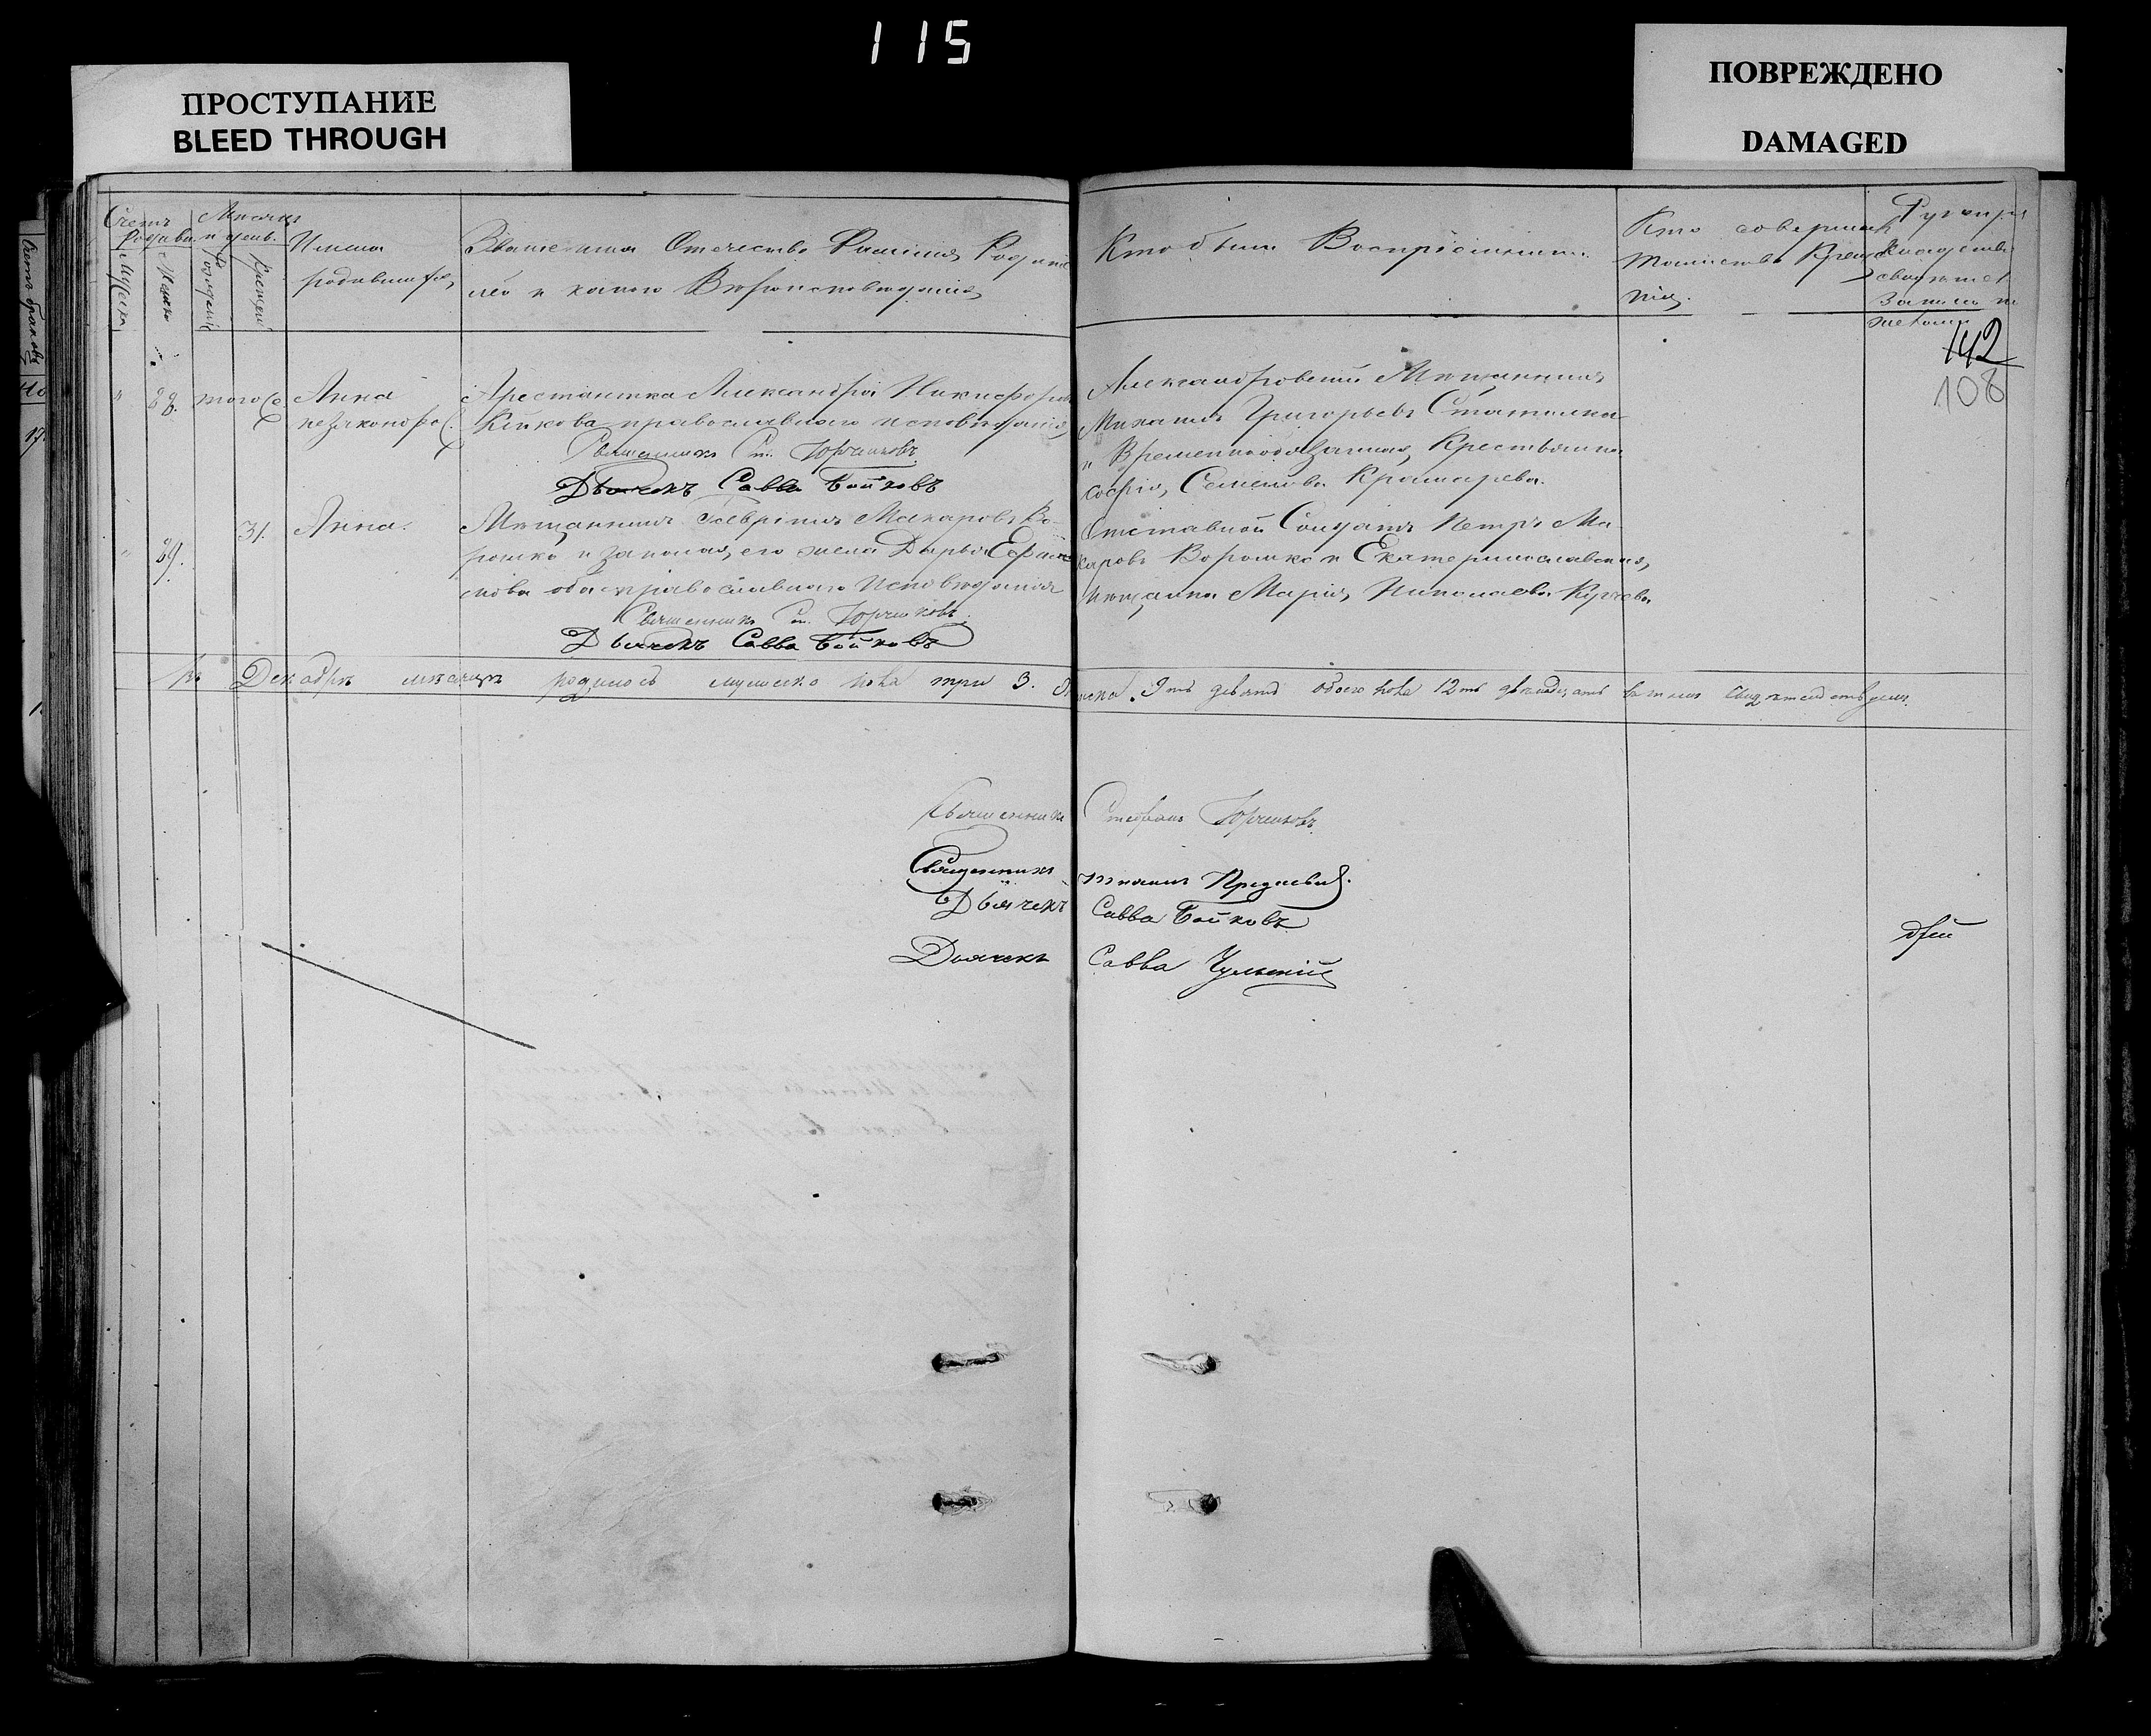 115
ПРОСТУПАНИЕ
BLEED THROUGH
ПОВРЕЖДЕНО
DAMAGED
Счетъ
Мѣсяцъ
и день.
Имена
родившихся
Званіе имя Отечество Фамилія Родите
лей и какого Вѣроисповѣданія
Кто были Воспріемники.
Кто совершалъ
таинство Крещ
нія.
142
108
28. того Анна
незаконорож.
Арестантка Александра Никифорова
православнаго исповѣданія
Священникъ Ст. Юрченковъ
Дьячекъ Савва Бойковъ
Александровскій Мѣщанинъ
Михаилъ Григорьевъ
и Временнообязанная Крестьянка
Софія Семенова Крамарева.
29. 31. Анна.
Мѣщанинъ Гавріилъ Макаровъ Во-
рошко и законная его жена Дарья
нова оба православнаго исповѣданія
Священникъ Ст. Юрченковъ
Дьячекъ Савва Бойковъ
Отставной Солдатъ Петръ Ма-
каровъ Ворошко и Екатеринославская
мѣщанка Марія Николаева
Въ Декабрѣ мѣсяцѣ родилось мужеска пола три 3. женска 9ть девять обоего пола 12ть двѣнадцать въ томъ свидѣтельствуемъ.
Священникъ Стефанъ Юрченковъ
Священникъ
Дьячекъ Савва Бойковъ
Дьячекъ Савва